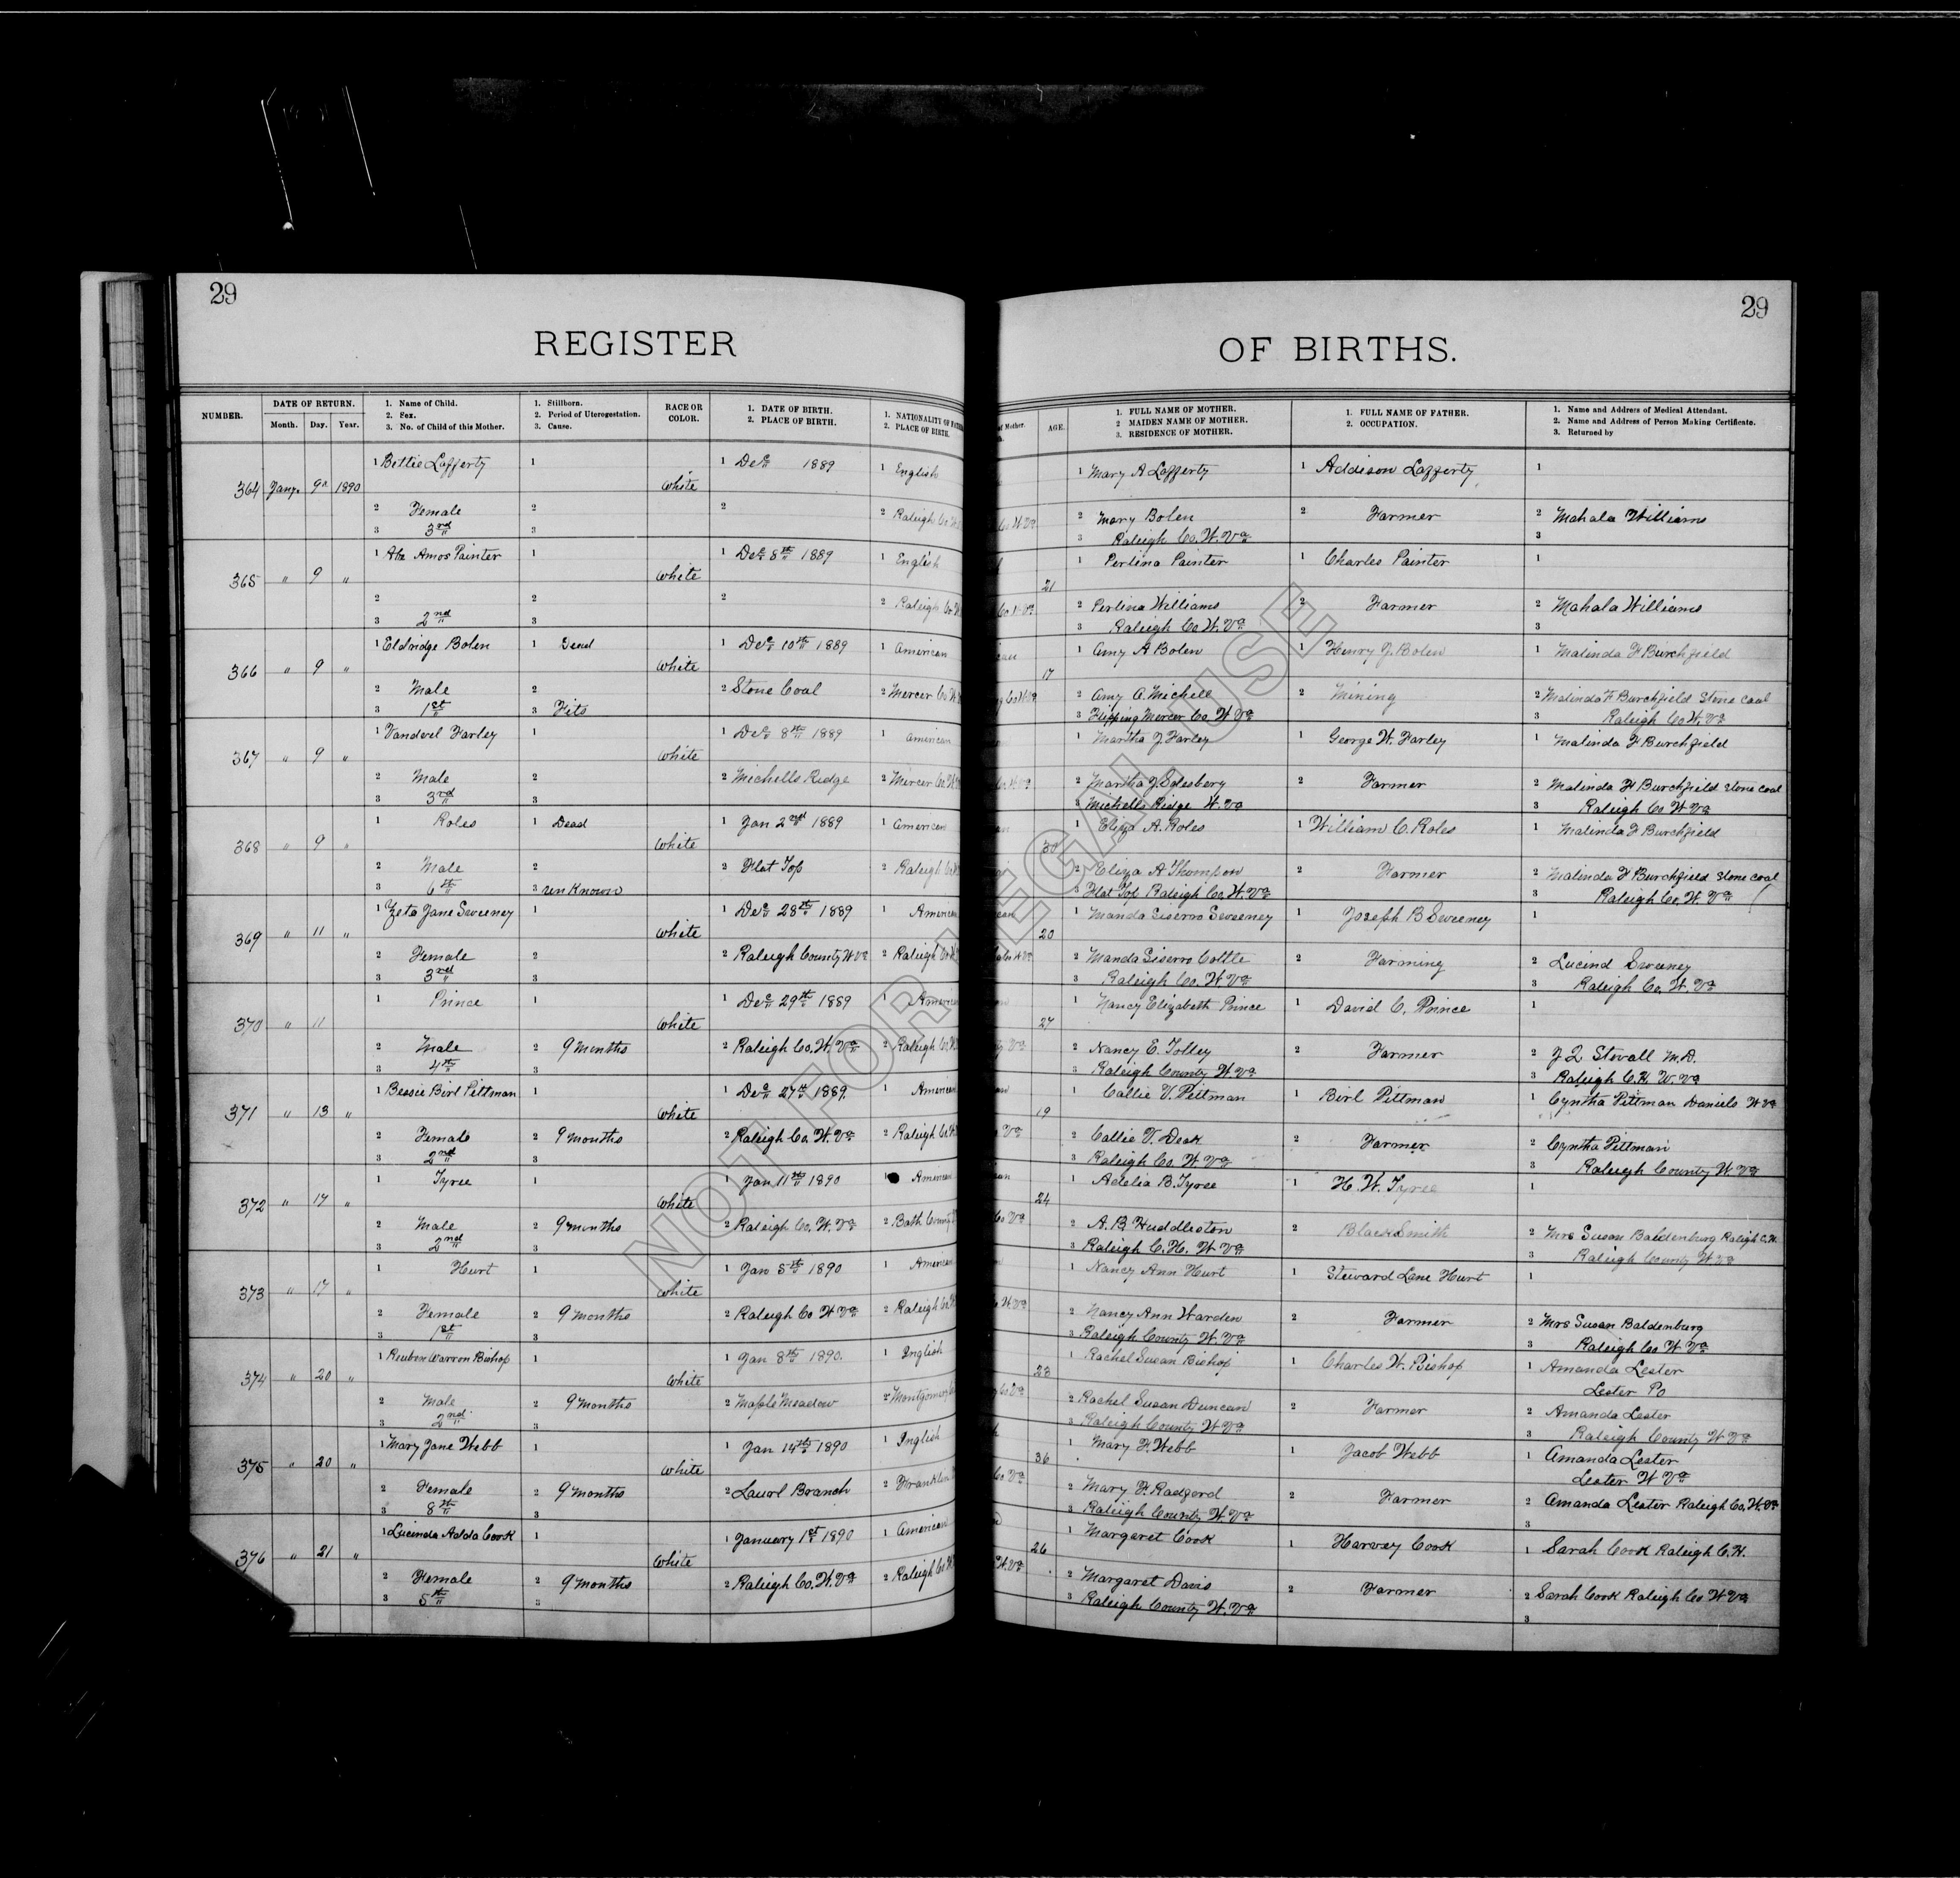 29
29
REGISTER
OF BIRTHS.
NUMBER.
DATE OF RETURN.
Month. Day. Year.
1. Name of Child.
2. Sex.
3. No. of Child of this Mother.
1. Stillborn.
2. Period of Uterogestation.
3. Cause.
RACE OR
COLOR.
1. DATE OF BIRTH.
2. PLACE OF BIRTH.
1. NATIONALITY OF
2. PLACE OF BIRTH.
of Mother.
AGE.
1. FULL NAME OF MOTHER.
2 MAIDEN NAME OF MOTHER.
3. RESIDENCE OF MOTHER.
1. FULL NAME OF FATHER.
2. OCCUPATION.
1. Name and Address of Medical Attendant.
2. Name and Address of Person Making Certificate.
3. Returned by
1 Bettie Lafferty 1 1 Dec 1889 1 English 1 Mary A Lafferty 1 Addison Lafferty 1
364 Jany. 9 1890 White
2 Female 2 2 2 Raleigh Co 2 Mary Bolen 2 Farmer 2 Mahala Williams
3 3rd 3 3 Raleigh Co. W. Va 3
1 Amos Painter 1 1 Dec 8th 1889 1 English 1 Perlina Painter 1 Charles Painter 1
365 " 9 " White 21
2 2 2 2 Raleigh Co 2 Perlina Williams 2 Farmer 2 Mahala Williams
3 2nd 3 3 Raleigh Co W. Va 3
1 Eldridge Bolen 1 Dead 1 Dec 10th 1889 1 American 1 Amy A Bolen 1 Henry J. Bolen 1 Malinda F Burchfield
366 " 9 " White 17
2 Male 2 2 Stone Coal 2 Mercer Co 2 Amy A. Michell 2 Mining 2 Malinda F Burchfield Stone Coal
3 1st 3 Fits 3 Flipping Mercer Co. W Va 3 Raleigh Co W. Va
1 Vandevel Farley 1 1 Dec 8th 1889 1 American 1 Martha J Farley 1 George W. Farley 1 Malinda F Burchfield
367 " 9 " White
2 Male 2 2 Michells Ridge 2 Mercer Co 2 Martha J. Solesbery 2 Farmer 2 Malinda F Burchfield Stone Coal
3 3rd 3 3 Michells Ridge W. Va 3 Raleigh Co W Va
1 Roles 1 Dead 1 Jan 2nd 1889 1 American 1 Eliza A. Roles 1 William C. Roles 1 Malinda F Burchfield
368 " 9 " White 30
2 Male 2 2 Flat Top 2 Raleigh 2 Eliza A Thompson 2 Farmer 2 Malinda F Burchfield Stone Coal
3 6th 3 unKnown 3 Flat Top Raleigh Co, W. Va 3 Raleigh Co. W. Va
1 Zeta Jane Sweeney 1 1 Dec 28th 1889 1 American 1 Manda Siserro Sweeney 1 Joseph B Sweeney 1
369 " 11 " White 20
2 Female 2 2 Raleigh County W Va 2 Raleigh Co 2 Manda Siserro Cottle 2 Farming 2 Lucind Sweeney
3 3rd 3 3 Raleigh Co. W. Va 3 Raleigh Co. W. Va
1 Prince 1 1 Dec 29th 1889 1 American 1 Nancy Elizabeth Prince 1 David C. Prince 1
370 " 11 White 27
2 Male 2 9 months 2 Raleigh Co. W. Va 2 Raleigh Co. 2 Nancy E. Tolley 2 Farmer 2 J Q. Stovall M.D.
3 4th 3 Raleigh County W. Va 3 Raleigh C.H. W. Va
1 Bessie Birl Pittman 1 1 Dec 27th 1889. 1 American 1 Callie V. Pittman 1 Birl Pittman 1 Cyntha Pittman Daniels W Va
371 " 13 " White 19
2 Female 2 9 months 2 Raleigh Co. W. Va 2 Raleigh Co. 2 Callie V. Deak 2 Farmer 2 Cyntha Pittman
3 2nd 3 3 Raleigh Co. W. Va 3 Raleigh County W. Va
1 Tyree 1 1 Jan 11th 1890 1 American 1 Adelia B. Tyree 1 H. W. Tyree 1
372 " 17 " White 24
2 Male 2 9 months 2 Raleigh Co, W. Va 2 Bath County 2 A. B. Huddleston 2 BlackSmith 2 Mrs Susan Baldenburg Raleigh C.H.
3 2nd 3 3 Raleigh C.H. W Va 3 Raleigh County W. Va
1 Hurt 1 1 Jan 5th 1890 1 American 1 Nancy Ann Hurt 1 Steward Lane Hurt 1
373 " 17 " White
2 Female 2 9 months 2 Raleigh Co W Va 2 Raleigh Co 2 Nancy Ann Warden 2 Farmer 2 Mrs Susan Baldenburg
3 1st 3 3 Raleigh County W. Va 3 Raleigh Co W Va
1 Reuben Warren Bishop 1 1 Jan 8th 1890. 1 English 1 Rachel Susan Bishop 1 Charles W. Bishop 1 Amanda Lester
374 " 20 " White 23 Lester Po
2 Male 2 9 months 2 Maple Meadow 2 Montgomery 2 Rachel Susan Duncan 2 Farmer 2 Amanda Lester
3 2nd 3 3 Raleigh County W Va 3 Raleigh County W Va
1 Mary Jane Webb 1 1 Jan 14th 1890 1 English 1 Mary F. Webb 1 Jacob Webb 1 Amanda Lester
375 " 20 " White 36 Lester W Va
2 Female 2 9 months 2 Laurl Branch 2 Franklin 2 Mary F. Radgerd 2 Farmer 2 Amanda Lester Raleigh Co, W. Va
3 8th 3 3 Raleigh County W. Va 3
1 Lucinda Adda Cook 1 1 January 1st 1890 1 American 1 Margaret Cook 1 Harvey Cook 1 Sarah Cook Raleigh C.H.
376 " 21 " White 26
2 Female 2 9 months 2 Raleigh Co. W. Va 2 Raleigh Co 2 Margaret Davis 2 Farmer 2 Sarah Cook Raleigh Co W Va
3 5th 3 3 Raleigh County W. Va 3
NOT FOR LEGAL USE